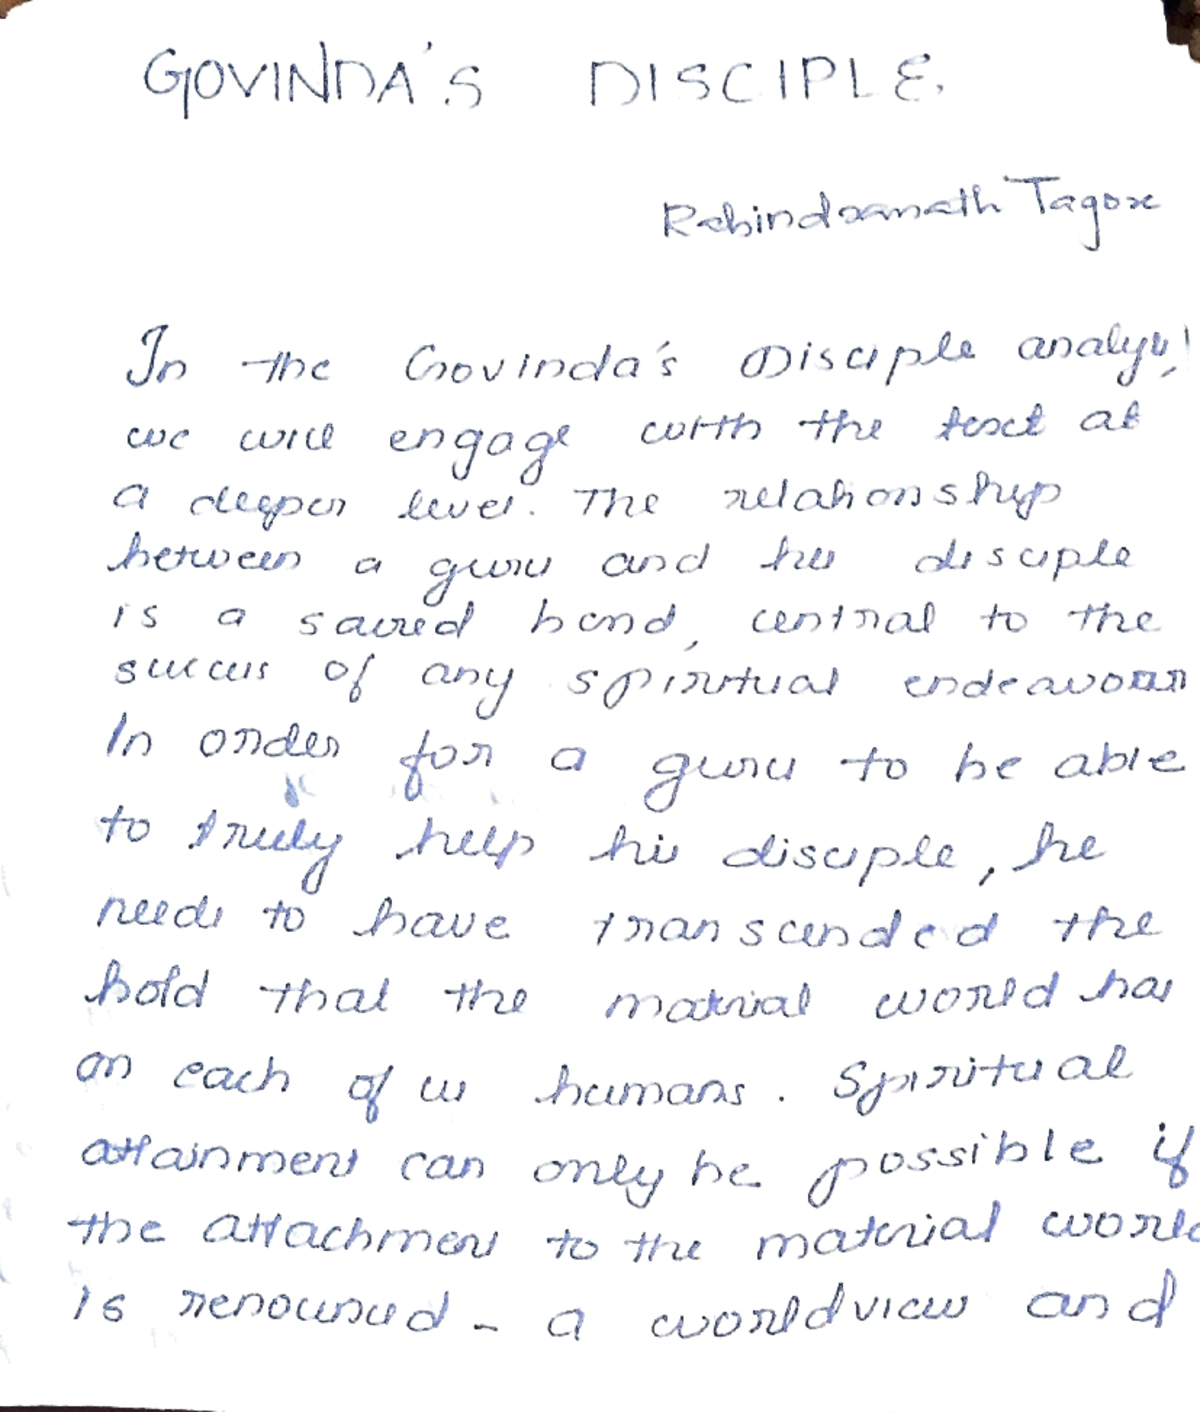 GOVINDA'S DISCIPLE.
Rabindranath Tagore
In the Govinda's Disciple
we will engage with the text at
a deeper level. The relationship
between a guru and his disciple
is a sacred bond, central to the
success of any spiritual endeavour
In order for a guru to be able
to truly help his disciple, he
needs to have transcended the
hold that the material world has
on each of us humans. Spiritual
attainment can only be possible if
the attachment to the material world
is renounced - a worldview and